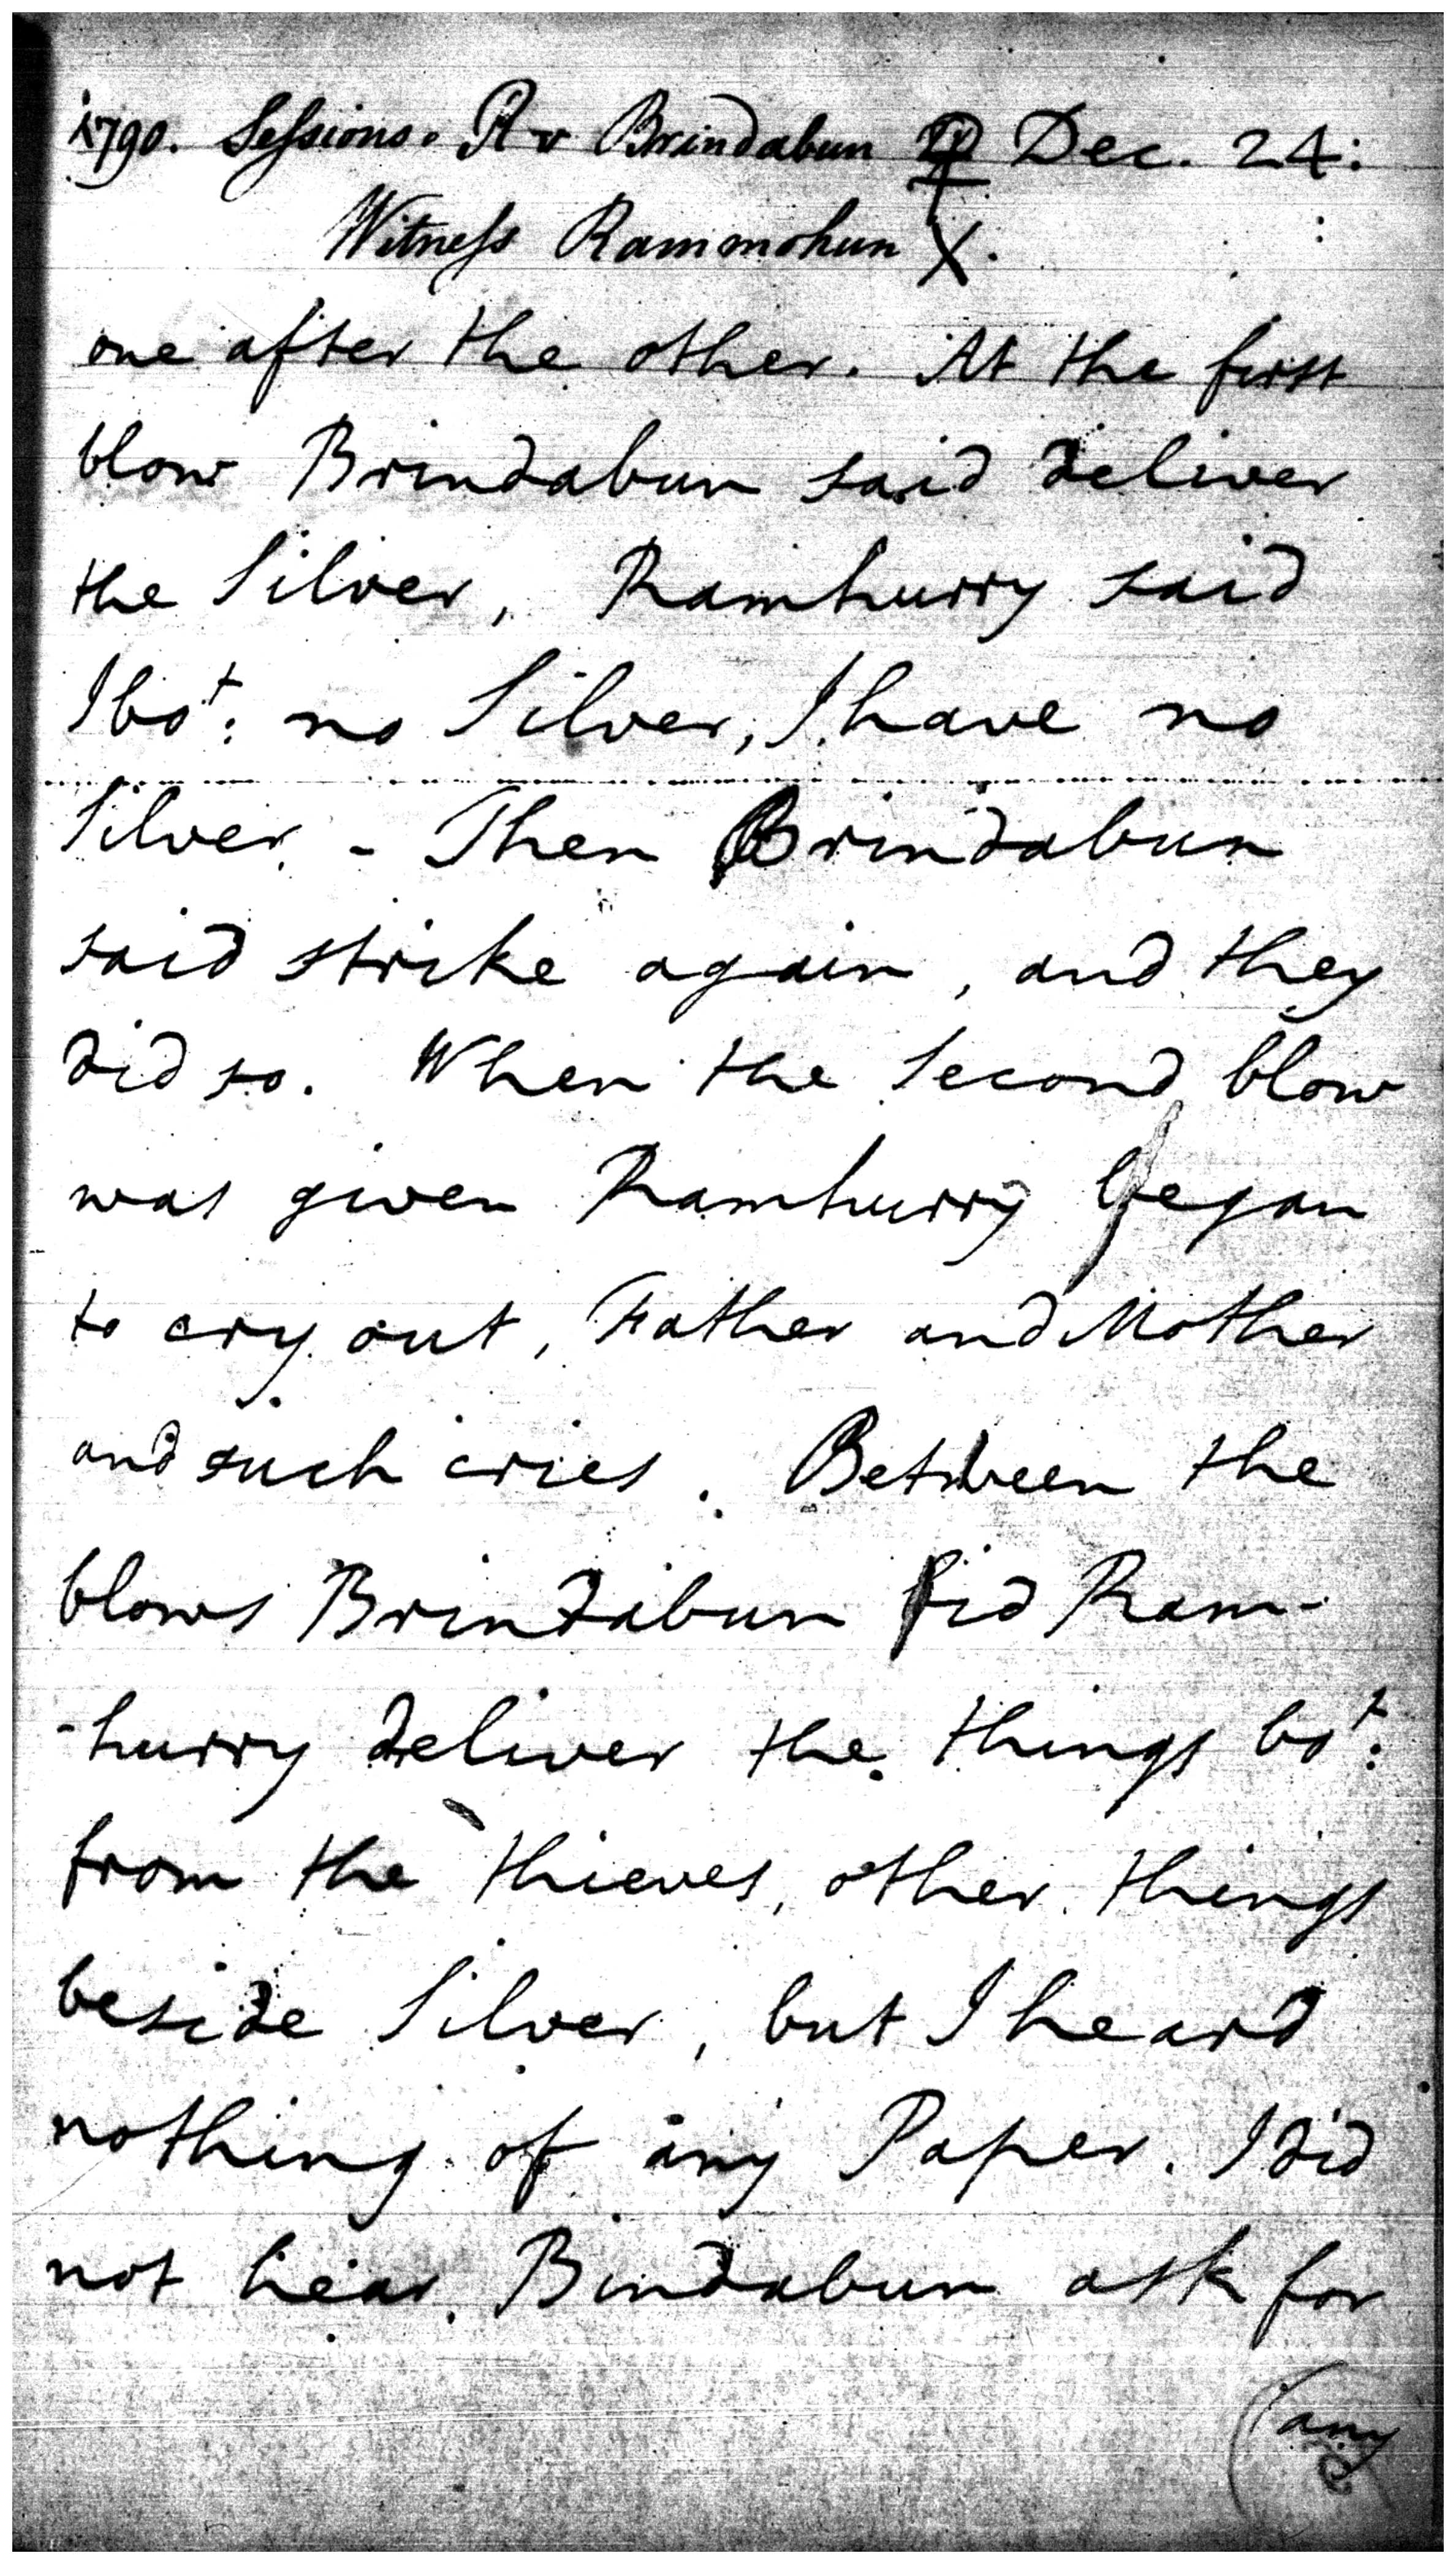 1790. Sessions. R v Brindabun Dec. 24:
Witness Rammohun X.
one after the other. At the first
blow Brindabun said deliver
the Silver, Ramhurry said
I bot: no Silver, I have no
Silver. - Then Brindabun
said strike again, and they
did so. When the Second blow
was given Ramhurry began
to cry out, Father and Mother
and such cries. Between the
blows Brindabun bid Ram-
-hurry deliver the things bot:
from the thieves, other things
beside Silver, but I heard
nothing of any Paper. I did
not hear Bindabun ask for
(any